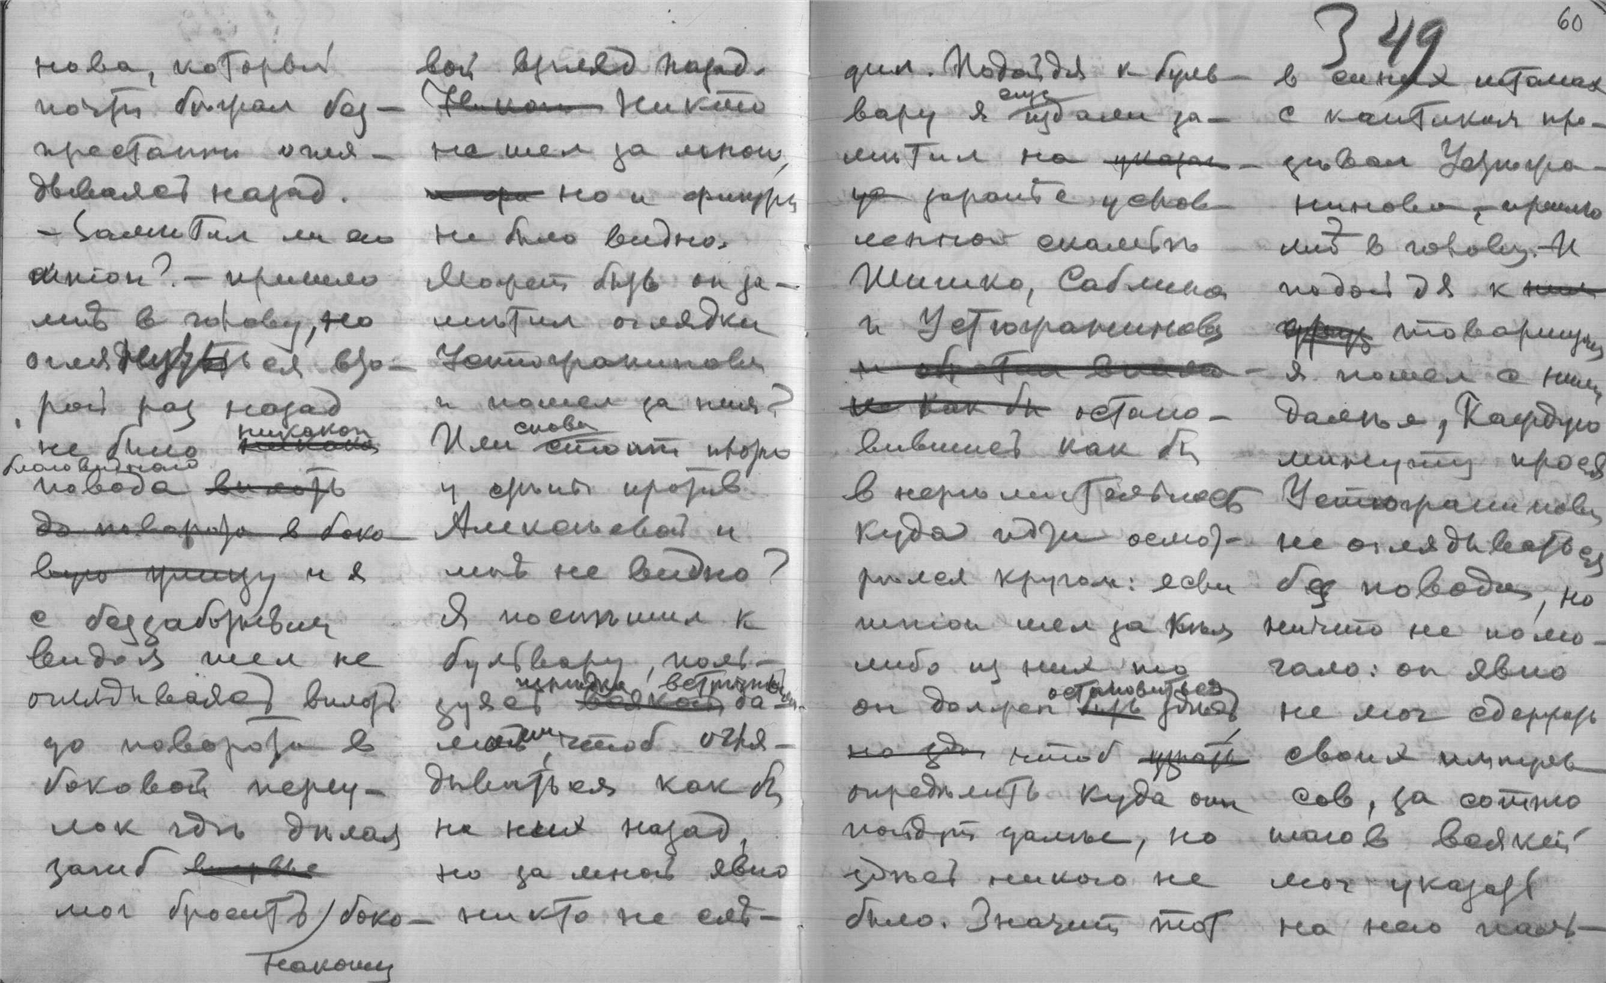 60
349
нова, который
почти бѣжал без-
престанно огля-
дываясь назад.
— Замѣтил ли его
шпіон? — пришло
мнѣ в голову, но
оглянуться вто-
рой раз назад
не было никакого
благовиднаго
повода
и я
с беззаботным
видом шел не
оглядываясь вплоть
до поворота в
боковой переу-
лок гдѣ дѣлая
загиб
мог бросить боко-
вой взгляд назад.
Никто
не шел за мною,
но и фигуры
не было видно.
Может быть он за-
мѣтил оглядки
Устюжанинова
и пошел за ним?
Или снова стоит
у стѣны против
Алексѣевой и
мнѣ не видно?
Я поспѣшил к
бульвару, поль-
зуясь встрѣчными да-
мами, чтоб огля-
дываться как бы
на них назад,
но за мной явно
никто не слѣ-
дил. Подойдя к буль-
вару я еще издали за-
мѣтил на
заранѣе услов-
ленной скамейкѣ
Шишко, Саблина
и Устюжанинова
остано-
вившись как бы
в нерѣшительности
куда идти осмот-
рѣлся кругом: если
шпіон шел за кѣм
либо из них то
он должен остановиться здѣсь
чтоб
опредѣлить куда они
пойдут далѣе, но
здѣсь никого не
было. Значит тот
в синих штанах
с кантиком про-
зѣвал Устюжа-
нинова, — пришло
мнѣ в голову. — И
подойдя к
товарищам
я пошел с ними
далѣе, каждую
минуту прося
Устюжанинова
не оглядываться
без повода, но
ничто не помо-
гало: он явно
не мог сдержать
своих импуль-
сов, за сотню
шагов всякій
мог указать
на него паль-